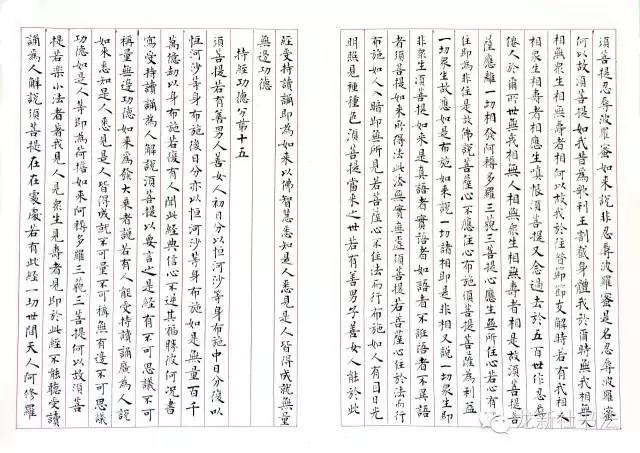 須菩提忍辱波羅蜜如來說非忍辱波羅蜜是名忍辱波羅蜜
何以故須菩提如我昔為歌利王割截身體我於爾時無我相無人
相無眾生相無壽者相何以故我於往昔節節支解時若有我相人
相眾生相壽者相應生嗔恨須菩提又念過去於五百世作忍辱
僊人於爾所世無我相無人相無眾生相無壽者相是故須菩提菩
薩應離一切相發阿耨多羅三藐三菩提心應生無所住心若心有
住即為非住是故佛說菩薩心不應住色布施須菩提菩薩為利益
一切眾生故應如是布施如來說一切諸相即是非相又說一切眾生即
非眾生須菩提如來是真語者實語者如語者不誑語者不異語
者須菩提如來所得法此法無實無虛須菩提若菩薩心住於法而行
布施如人入暗即無所見若菩薩心不住法而行布施如人有目日光
明照見種種色須菩提當來之世若有善男子善女人能於此
經受持讀誦即為如來以佛智慧悉知是人悉見是人皆得成就無量
無邊功德
持經功德分第十五
須菩提若有善男子善女人初日分以恒河沙等身布施中日分復以
恒河沙等身布施後日分亦以恒河沙等身布施如是無量百千
萬億劫以身布施若復有人聞此經典信心不逆其福勝彼何況書
寫受持讀誦為人解說須菩提以要言之是經有不可思議不可
稱量無邊功德如來為發大乘者說若有人能受持讀誦廣為人說
如來悉知是人悉見是人皆得成就不可量不可稱無有邊不可思議
功德如是人等即為荷擔如來阿耨多羅三藐三菩提何以故須菩
提若樂小法者著我見人見眾生見壽者見即於此經不能聽受讀
誦為人解說須菩提在在處處若有此經一切世間天人阿修羅
龙新社书法